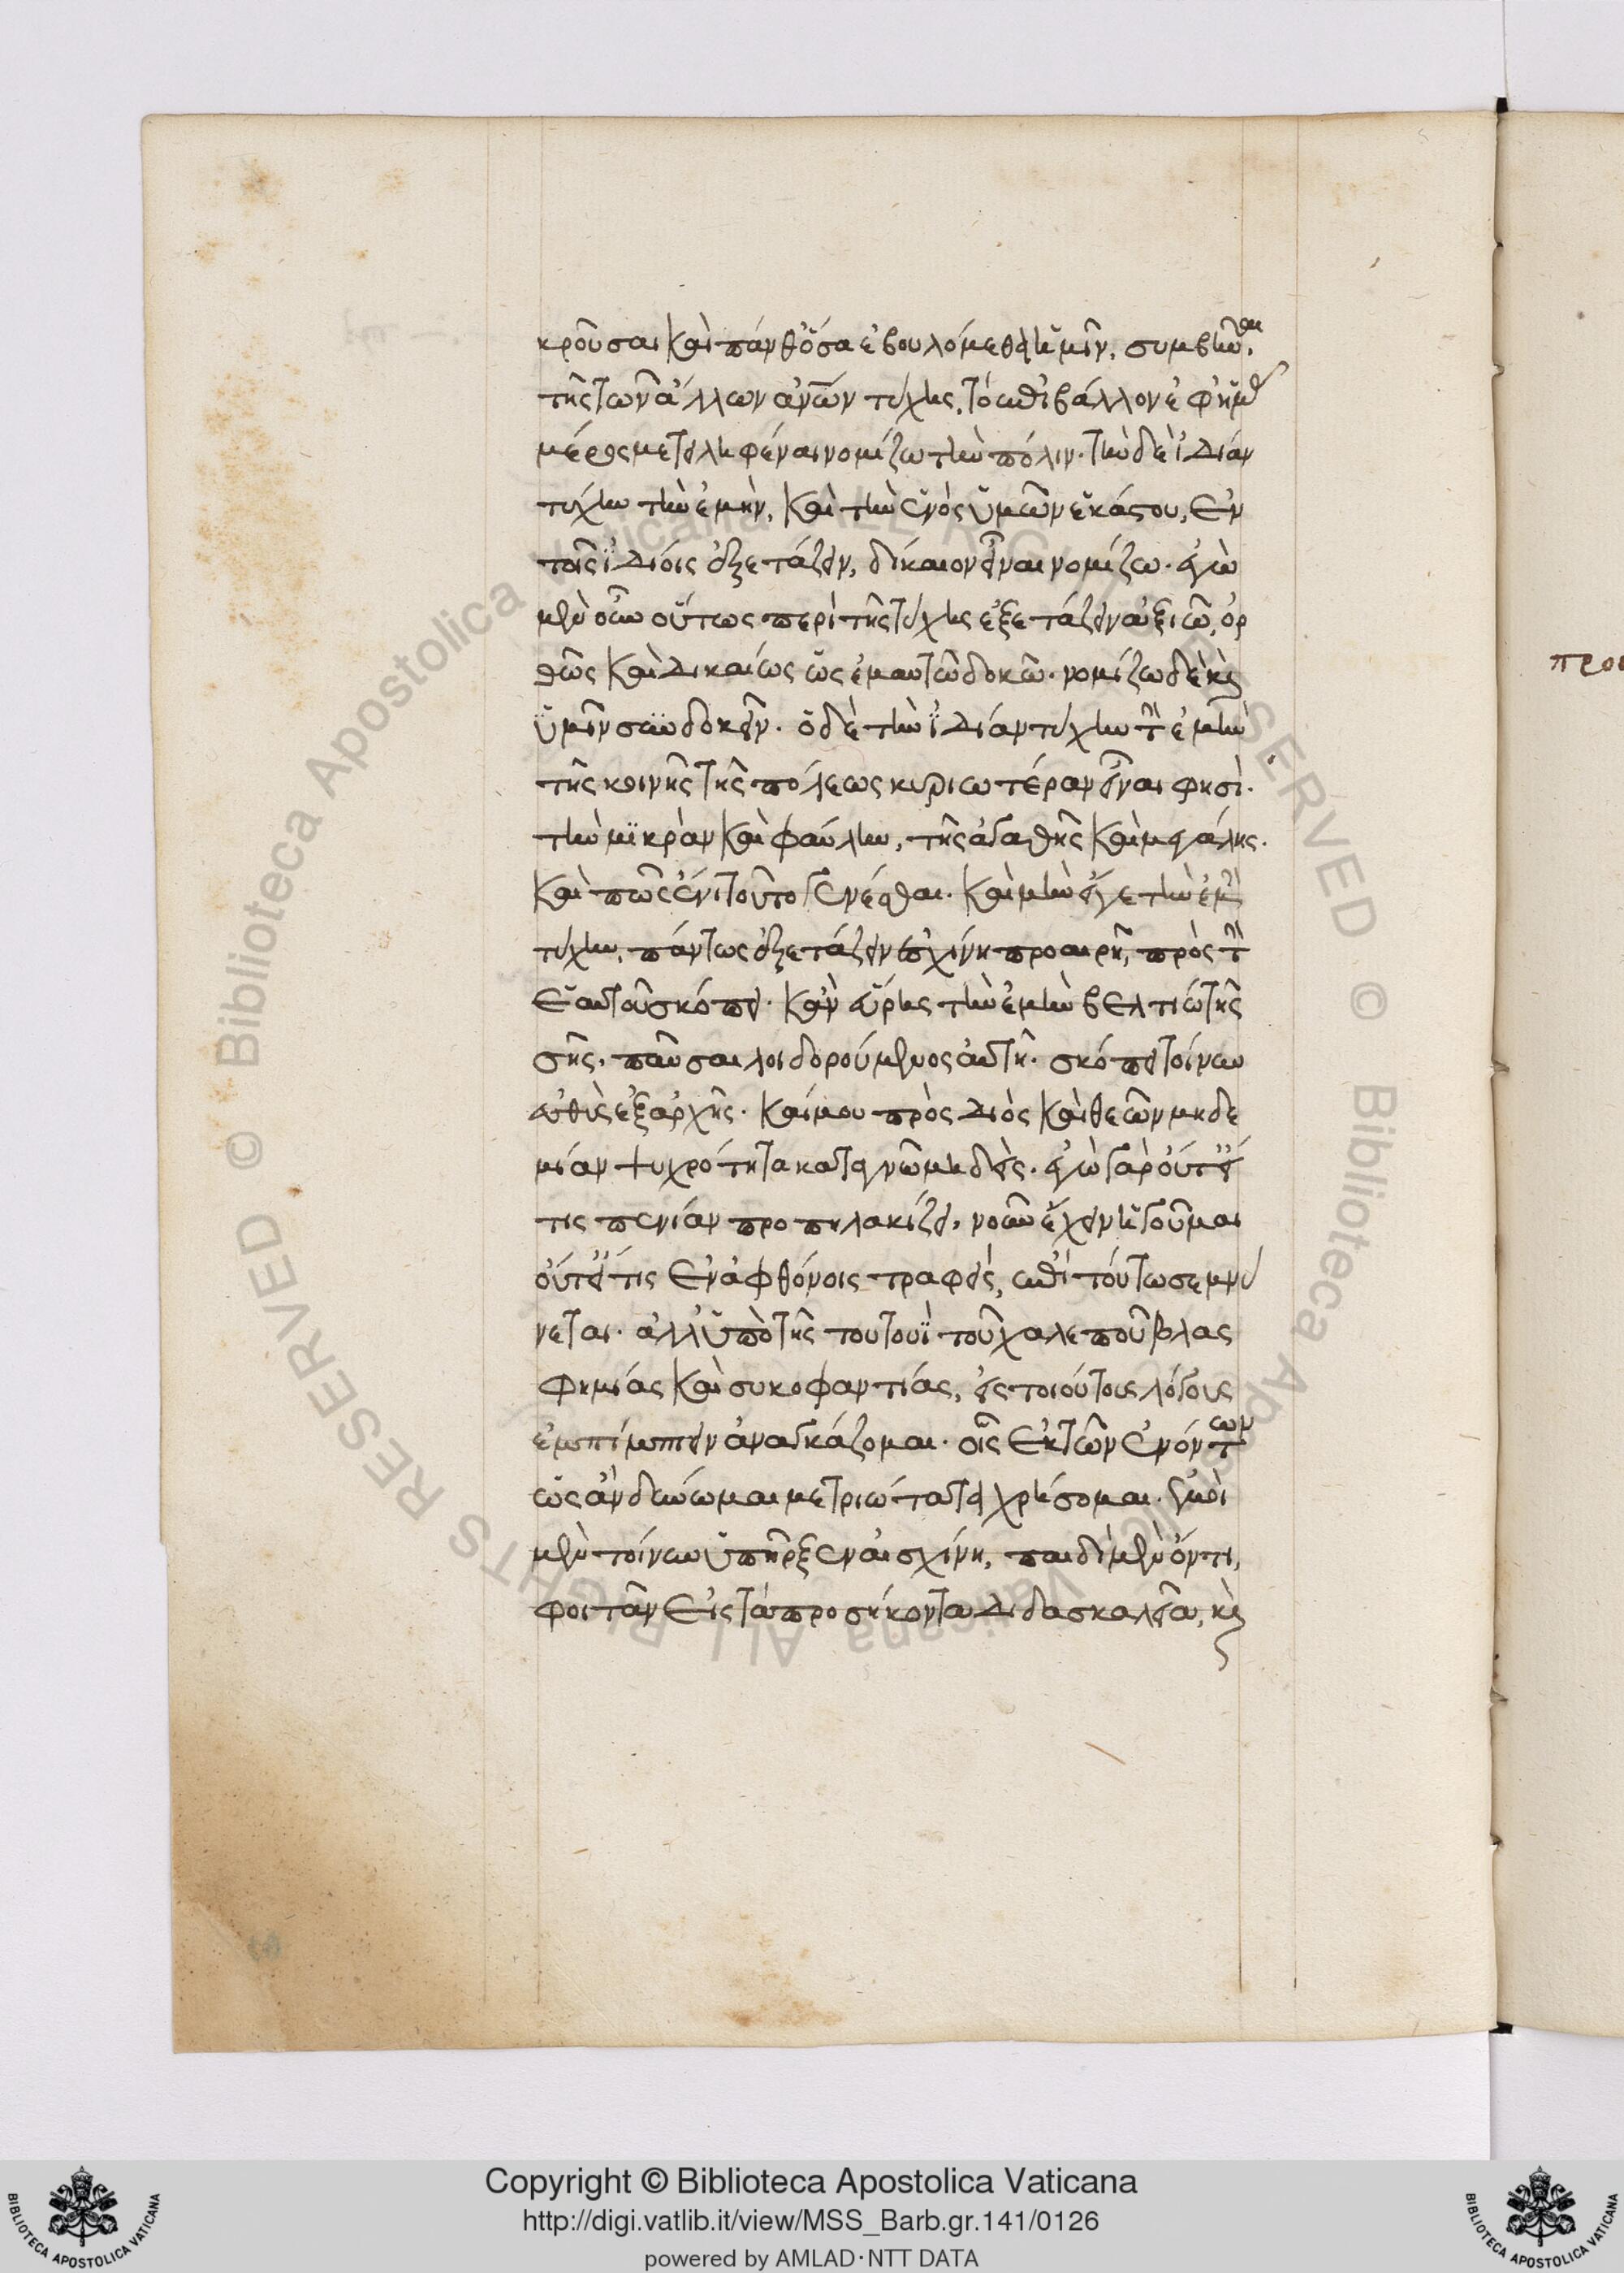 κροῦσαι καὶ πάνθ' ὅσα ἐβουλόμεθα ἡμῖν, συμβῆναι.
τῆς τῶν ἄλλων ἀνων τύχης, τὸ ἐπιβάλλον ἐφ' ἡμᾶς
μέρος μετειληφέναι νομίζω τὴν πόλιν. τὴν δὲ ἰδίαν
τύχην τὴν ἐμὴν, καὶ τὴν ἑνὸς ὑμῶν ἑκάστου, ἐν
τοῖς ἰδίοις ἐξετάζειν, δίκαιον εἶναι νομίζω. ἐγὼ
μὲν οὖν οὕτως περὶ τῆς τύχης ἐξετάζειν ἀξιῶ, ὀρ
θῶς καὶ δικαίως ὡς ἐμαυτῶ δοκῶ. νομίζω δὲ καὶ
ὑμῖν συνδοκεῖν. ὁ δὲ τὴν ἰδίαν τύχην τὴν ἐμὴν
τῆς κοινῆς τῆς πόλεως κυριωτέραν εἶναι φησὶ.
τὴν μικρὰν καὶ φαύλην, τῆς ἀγαθῆς καὶ μεγάλης.
καὶ πῶς ἔνι τοῦτο γενέσθαι. καὶ μὴν εἴγε τὴν ἐμὴν
τύχην, πάντως ἐξετάζειν αἰσχίνη προαιρῆ, πρὸς τὴν
ἑαυτοῦ σκόπει. κἂν εὕρης τὴν ἐμὴν βελτίω τῆς
σῆς, παῦσαι λοιδορούμενος αὐτῆ. σκόπει τοίνυν
εὐθὺς ἐξ ἀρχῆς. καί μου πρὸς διὸς καὶ θεῶν μηδε
μίαν ψυχρότητα καταγνῶ μηδείς. ἐγὼ γὰρ οὔτ' εἴ
τις πενίαν προπηλακίζει, νοῦν ἔχειν ἡγοῦμαι
οὔτ' εἴ τις ἐν ἀφθόνοις τραφεὶς, ἐπὶ τούτω σεμνύ
νεται. ἀλλ' ὑπὸ τῆς τουτουῒ τοῦ χαλεποῦ βλας
φημίας καὶ συκοφαντίας, εἰς τοιούτους λόγους
ἐμπίμπειν ἀναγκάζομαι. οἷς ἐκ τῶν ἐνόντων
ὡς ἂν δύνωμαι μετριώτατα χρήσομαι. ἐμοὶ
μὲν τοίνυν ὑπῆρξεν αἰσχίνη, παιδὶ μὲν ὄντι,
φοιτᾶν εἰς τὰ προσήκοντα διδασκαλεῖα, καὶ
Copyright © Biblioteca Apostolica Vaticana
http://digi.vatlib.it/view/MSS_Barb.gr.141/0126
powered by AMLAD·NTT DATA